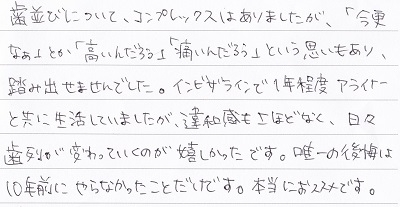 歯並びについて、コンプレックスはありましたが、「今更
なぁ」とか「高いんだろう」「痛いんだろう」という思いもあり、
踏み出せませんでした。インビザラインで1年程度アライナー
と共に生活していましたが、違和感もさほどなく、日々
歯列が変わっていくのが嬉しかったです。唯一の後悔は
10年前にやらなかったことだけです。本当におススメです。